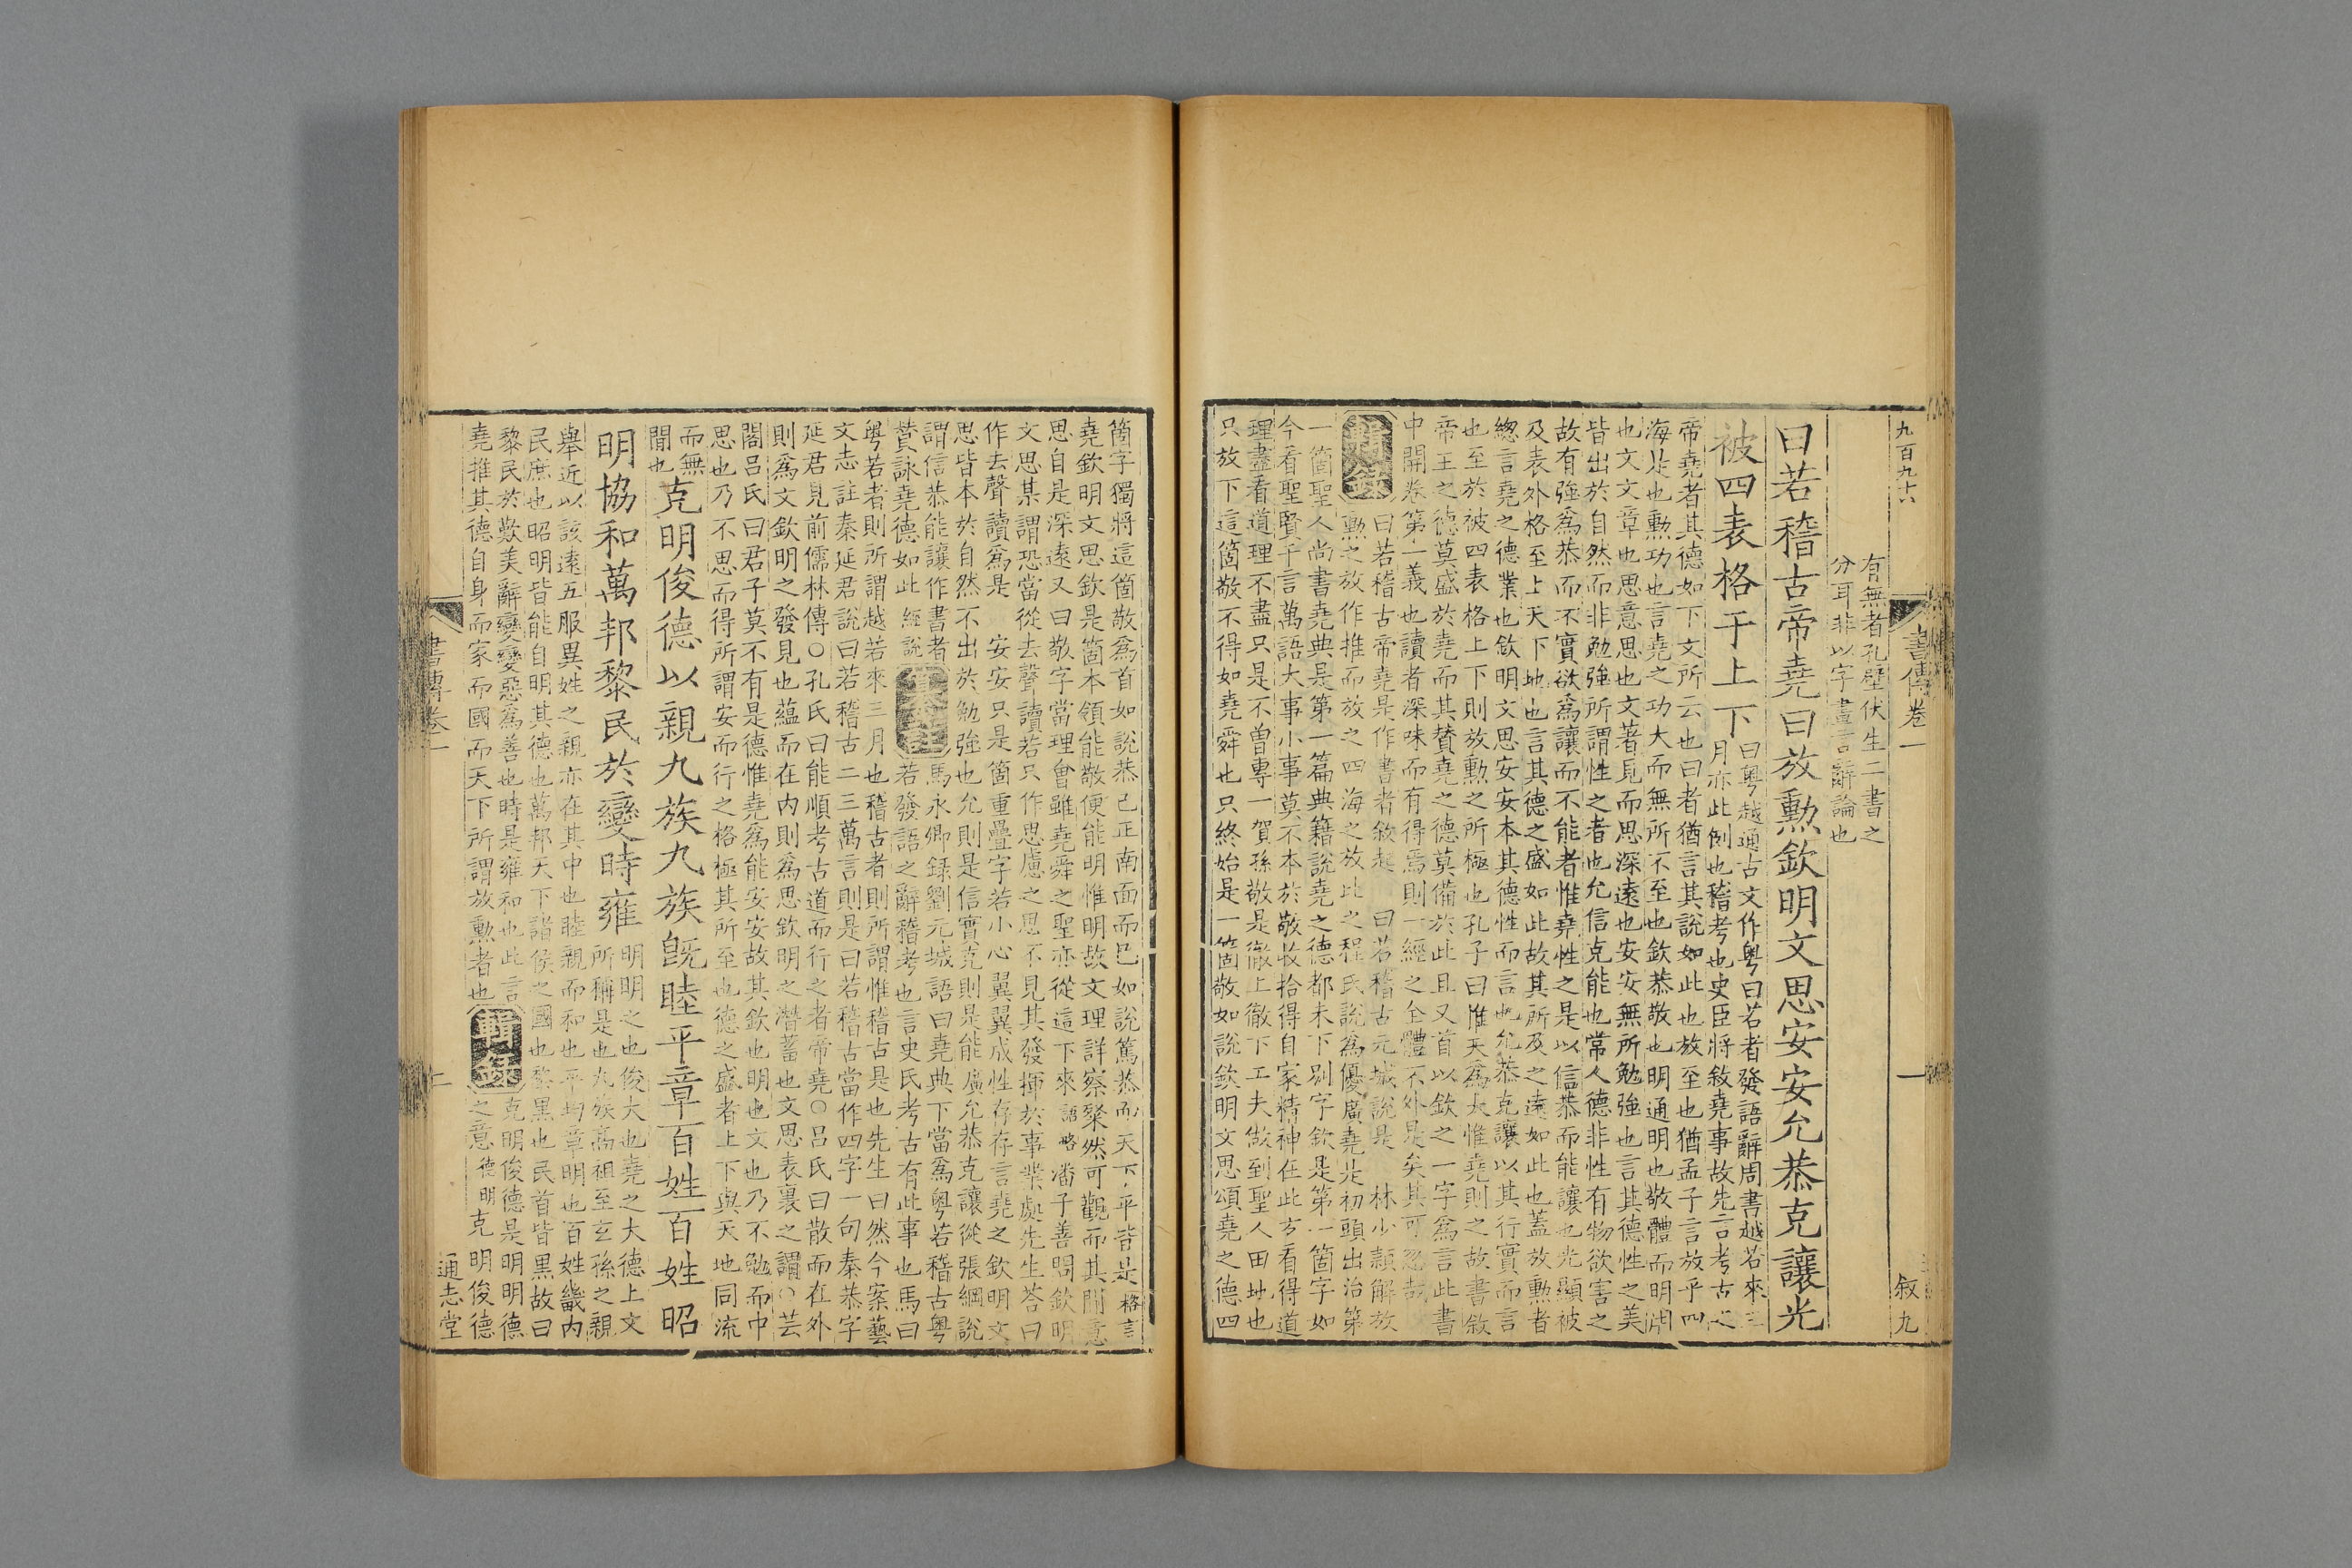 九百九十六
書傳卷一
一
叙九
有無者孔壁伏生二書之
分耳非以字畫言辭論也
曰若稽古帝堯曰放勲欽明文思安安允恭克讓光
被四表格于上下
曰粤越通古文作粤曰若者發語辭周書越若來三
月亦此例也稽考也史臣將敘堯事故先言考古之
帝堯者其德如下文所云也曰者猶言其說如此也放至也猶孟子言放乎四
海是也勲功也言堯之功大而無所不至也欽恭敬也明通明也敬體而明用
也文文章也思意思也文著見而思深遠也安安無所勉強也言其德性之美
皆出於自然而非勉強所謂性之者也允信克能也常人德非性有物欲害之
故有強爲恭而不實欲爲讓而不能者惟堯性之是以信恭而能讓也光顯被
及表外格至上天下地也言其德之盛如此故其所及之遠如此也蓋放勲者
緫言堯之德業也欽明文思安安本其德性而言也允恭克讓以其行實而言
也至於被四表格上下則放勲之所極也孔子曰惟天爲大惟堯則之故書敘
帝王之德莫盛於堯而其贊堯之德莫備於此且又首以欽之一字爲言此書
中開卷第一義也讀者深味而有得焉則一經之全體不外是矣其可忽哉
曰若稽古帝堯是作書者敘起 曰若稽古元城說是 林少穎解放
輯錄
勲之放作推而放之四海之放比之程氏說爲優廣堯是初頭出治第
一箇聖人尚書堯典是第一篇典籍說堯之德都未下别字欽是第一箇字如
今看聖賢千言萬語大事小事莫不本於敬收拾得自家精神在此方看得道
理盡看道理不盡只是不曾專一賀孫敬是徹上徹下工夫做到聖人田地也
只放下這箇敬不得如堯舜也只終始是一箇敬如說欽明文思頌堯之德四
箇字獨將這箇敬爲首如說恭己正南面而已如說篤恭而天下平皆是格言
堯欽明文思欽是箇本領能敬便能明惟明故文理詳察粲然可觀而其間意
思自是深遠又曰敬字當理會雖堯舜之聖亦從這下來語略潘子善問欽明
文思某謂恐當從去聲讀若只作思慮之思不見其發揮於事業處先生荅曰
作去聲讀爲是 安安只是箇重疊字若小心翼翼成性存存言堯之欽明文
思皆本於自然不出於勉強也允則是信實克則是能廣允恭克讓從張綱說
謂信恭能讓作書者
贊詠堯德如此經說
纂註
馬永卿録劉元城語曰堯典下當爲粤若稽古粤
若發語之辭稽考也言史氏考古有此事也馬曰
粤若者則所謂越若來三月也稽古者則所謂惟稽古是也先生曰然今案藝
文志註秦延君說曰若稽古二三萬言則是曰若稽古當作四字一句秦恭字
延君見前儒林傳○孔氏曰能順考古道而行之者帝堯○呂氏曰散而在外
則爲文欽明之發見也蘊而在内則爲思欽明之潛蓄也文思表裏之謂○芸
閣呂氏曰君子莫不有是德惟堯爲能安安故其欽也明也文也乃不勉而中
思也乃不思而得所謂安而行之格極其所至也德之盛者上下與天地同流
而無
間也
克明俊德以親九族九族既睦平章百姓百姓昭
明協和萬邦黎民於變時雍
明明之也俊大也堯之大德上文
所稱是也九族高祖至玄孫之親
舉近以該遠五服異姓之親亦在其中也睦親而和也平均章明也百姓畿内
民庶也昭明皆能自明其德也萬邦天下諸侯之國也黎黑也民首皆黑故曰
黎民於歎美辭變變惡爲善也時是雍和也此言
堯推其德自身而家而國而天下所謂放勲者也
輯錄
克明俊德是明明德
之意德明克明俊德
書傳卷一
二
通志堂